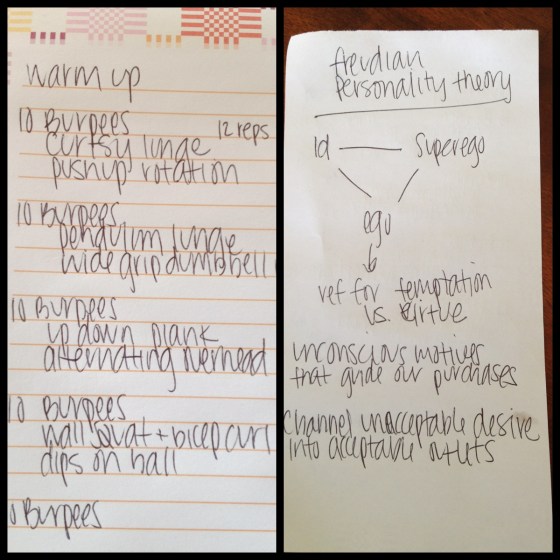 warm up
10 Burpees
12 reps
curtsy lunge
pushup rotation
10 Burpees
pendulum lunge
wide grip dumbbell
10 Burpees
up down plank
alternating overhead
10 Burpees
wall squat + bicep curl
dips on ball
0 Burpees
freudian
personality theory
id
superego
ego
ref for temptation
vs. virtue
unconscious motives
that guide our purchases
Channel unacceptable desire
into acceptable outlets